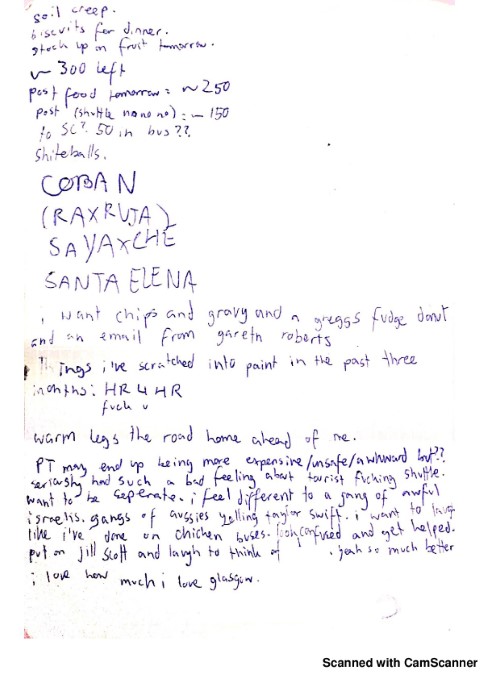 soil creep.
biscuits for dinner.
stock up on fruit tomorrow.
~ 300 left
post food tomorrow = ~250
post (shuttle no no no) : ~ 150
to SC? 50 in bus??
shiteballs.
COBAN
(RAXRUJA)
SAYAXCHE
SANTA ELENA
i want chips and gravy and a greggs fudge donut
and an email from gareth roberts
things i've scratched into paint in the past three
months: HR 4 HR
fuck u
warm legs the road home ahead of me.
PT may end up being more expensive/unsafe/awkward but??
seriously had such a bad feeling about tourist fucking shuttle.
want to be seperate. i feel different to a gang of awful
israelis. gangs of aussies yelling taylor swift. i want to laugh
like i've done on chicken buses. look confused and get helped.
put on jill scott and laugh to think of . yeah so much better
i love how much i love glasgow.
Scanned with CamScanner